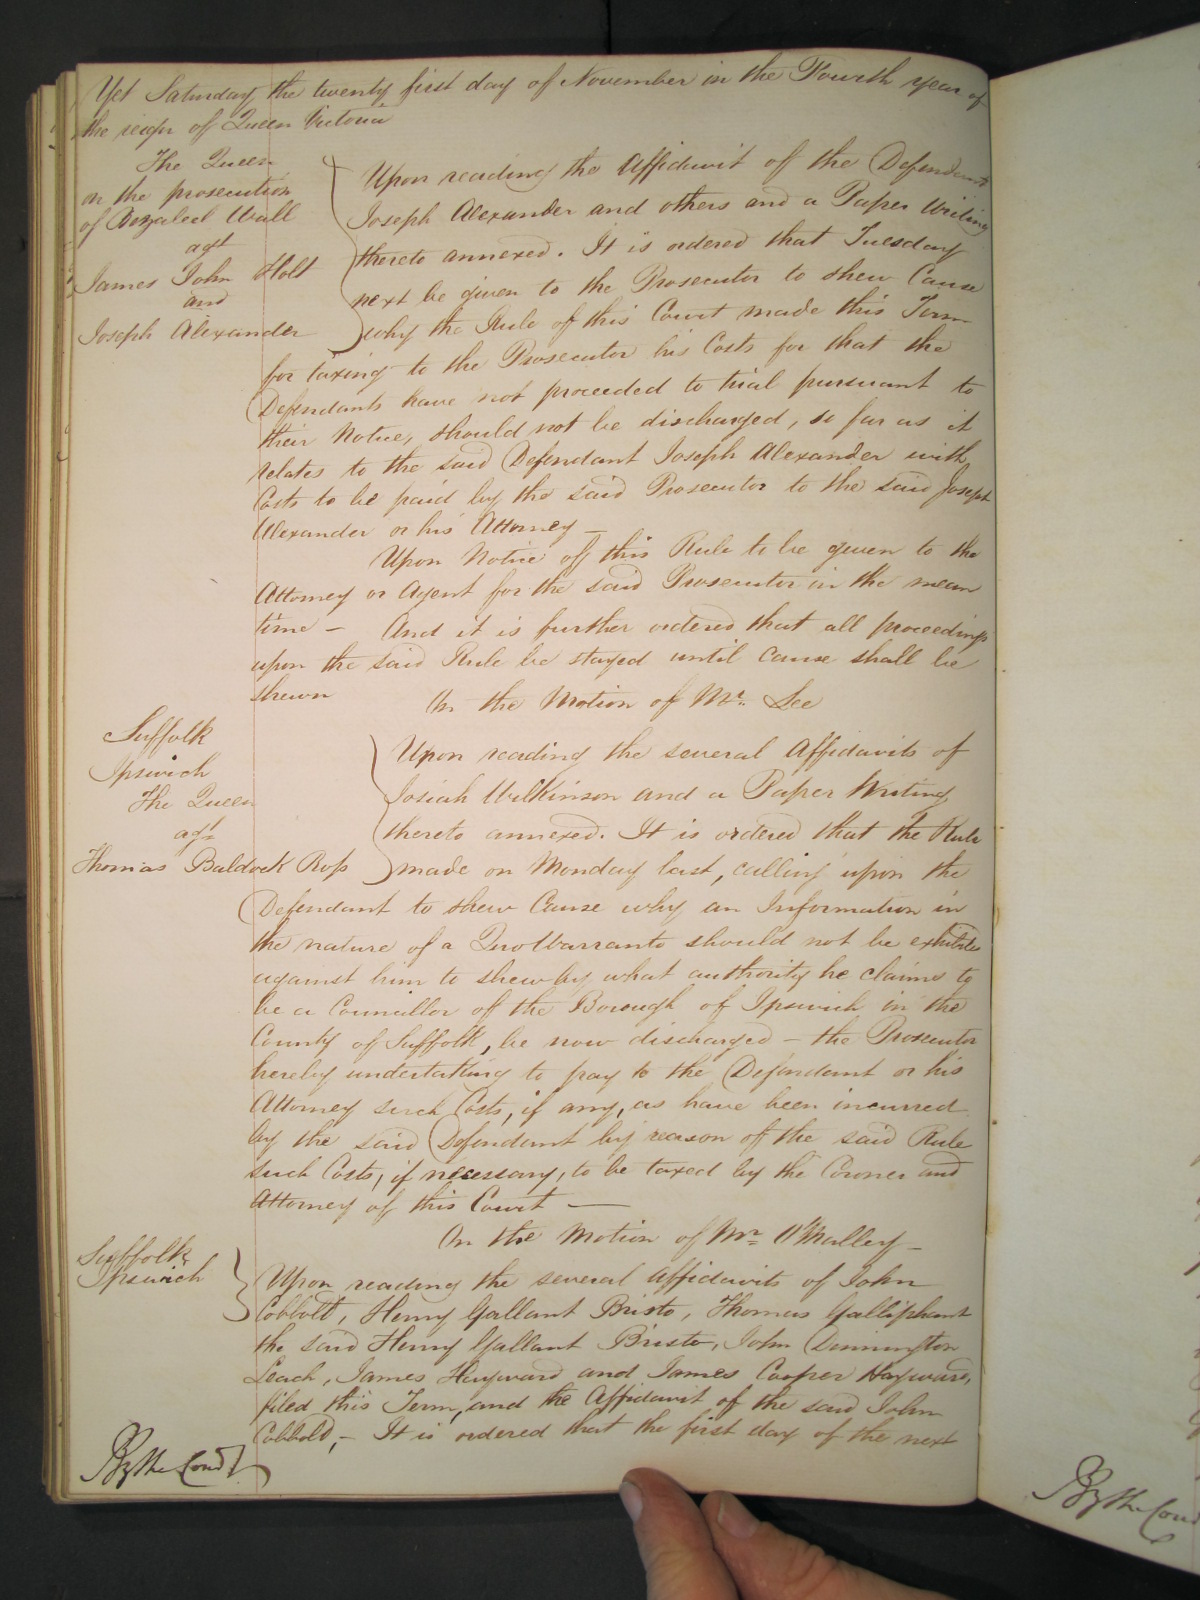 Yet Saturday the twenty first day of November in the Fourth year of
the reign of Queen Victoria
The Queen
on the prosecution
of Bezaleel Wall
agt
James John Holt
and
Joseph Alexander
Upon reading the Affidavit of the Defendant
Joseph Alexander and others and a Paper Writing
thereto annexed. It is ordered that Tuesday
next be given to the Prosecutor to shew Cause
why the Rule of this Court made this Term
for taxing to the Prosecutor his Costs for that the
Defendants have not proceeded to trial pursuant to
their Notice, should not be discharged, so far as it
relates to the said Defendant Joseph Alexander with
Costs to be paid by the said Prosecutor to the said Joseph
Alexander or his Attorney —
Upon Notice of this Rule to be given to the
Attorney or Agent for the said Prosecutor in the mean
time — And it is further ordered that all proceedings
upon the said Rule be stayed until cause shall be
shewn
On the Motion of Mr. Lee
Suffolk
Ipswich
The Queen
agt
Thomas Baldock Ross
Upon reading the several Affidavits of
Josiah Wilkinson and a Paper Writing
thereto annexed. It is ordered that the Rule
made on Monday last, calling upon the
Defendant to shew Cause why an Information in
the nature of a Quo Warranto should not be exhibited
against him to shew by what authority he claims to
be a Councillor of the Borough of Ipswich in the
County of Suffolk, be now discharged — the Prosecutor
hereby undertaking to pay to the Defendant or his
Attorney such Costs, if any, as have been incurred
by the said Defendant by reason of the said Rule
such Costs, if necessary, to be taxed by the Coroner and
Attorney of this Court —
On the Motion of Mr. O'Malley —
Suffolk
Ipswich
Upon reading the several Affidavits of John
Cobbold, Henry Gallant Bristo, Thomas Galliphant
the said Henry Gallant Bristo, John Dinnington
Leach, James Hayward and James Cooper Hayward,
filed this Term, and the Affidavit of the said John
Cobbold, — It is ordered that the first day of the next
By the Court
By the Cour